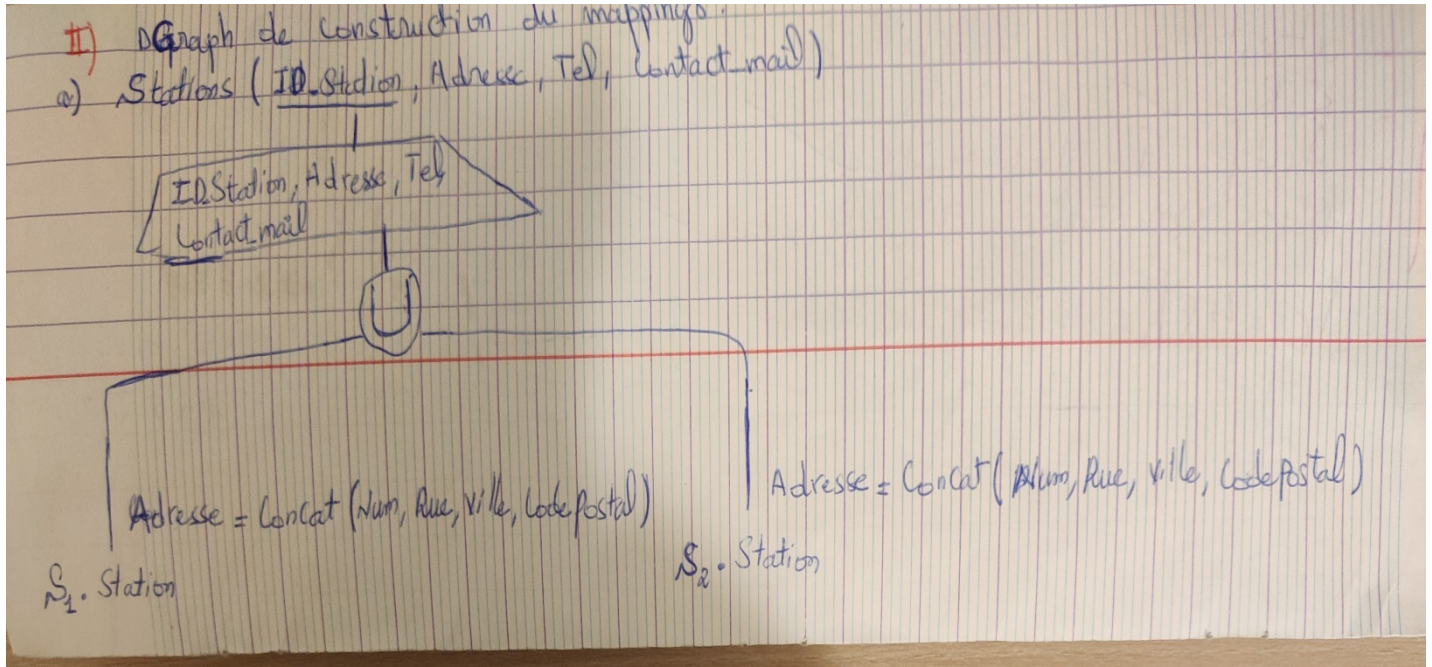 II) Graph de construction du mappings.
a) Stations (ID_Station, Adresse, Tel, Contact_mail)
ID_Station, Adresse, Tel,
Contact_mail
U
Adresse = Concat (Num, Rue, Ville, CodePostal)
Adresse = Concat (Num, Rue, ville, CodePostal)
S1. Station
S2. Station